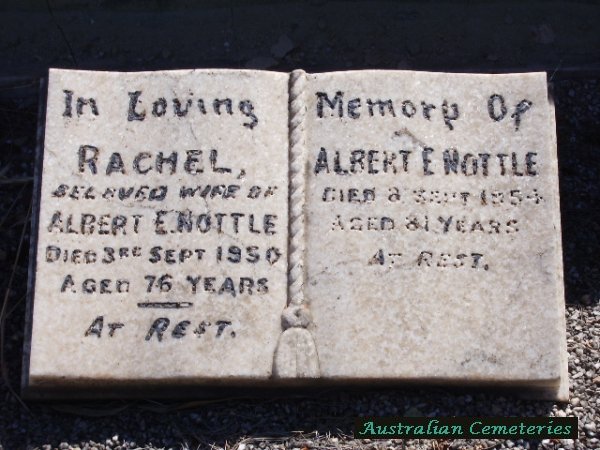 In Loving
RACHEL,
BELOVED WIFE OF
ALBERT E. NOTTLE
DIED 3RD SEPT 1950
AGED 76 YEARS
AT REST.
Memory Of
ALBERT E NOTTLE
DIED 8 SEPT 1954
AGED 81 YEARS
AT REST.
Australian Cemeteries